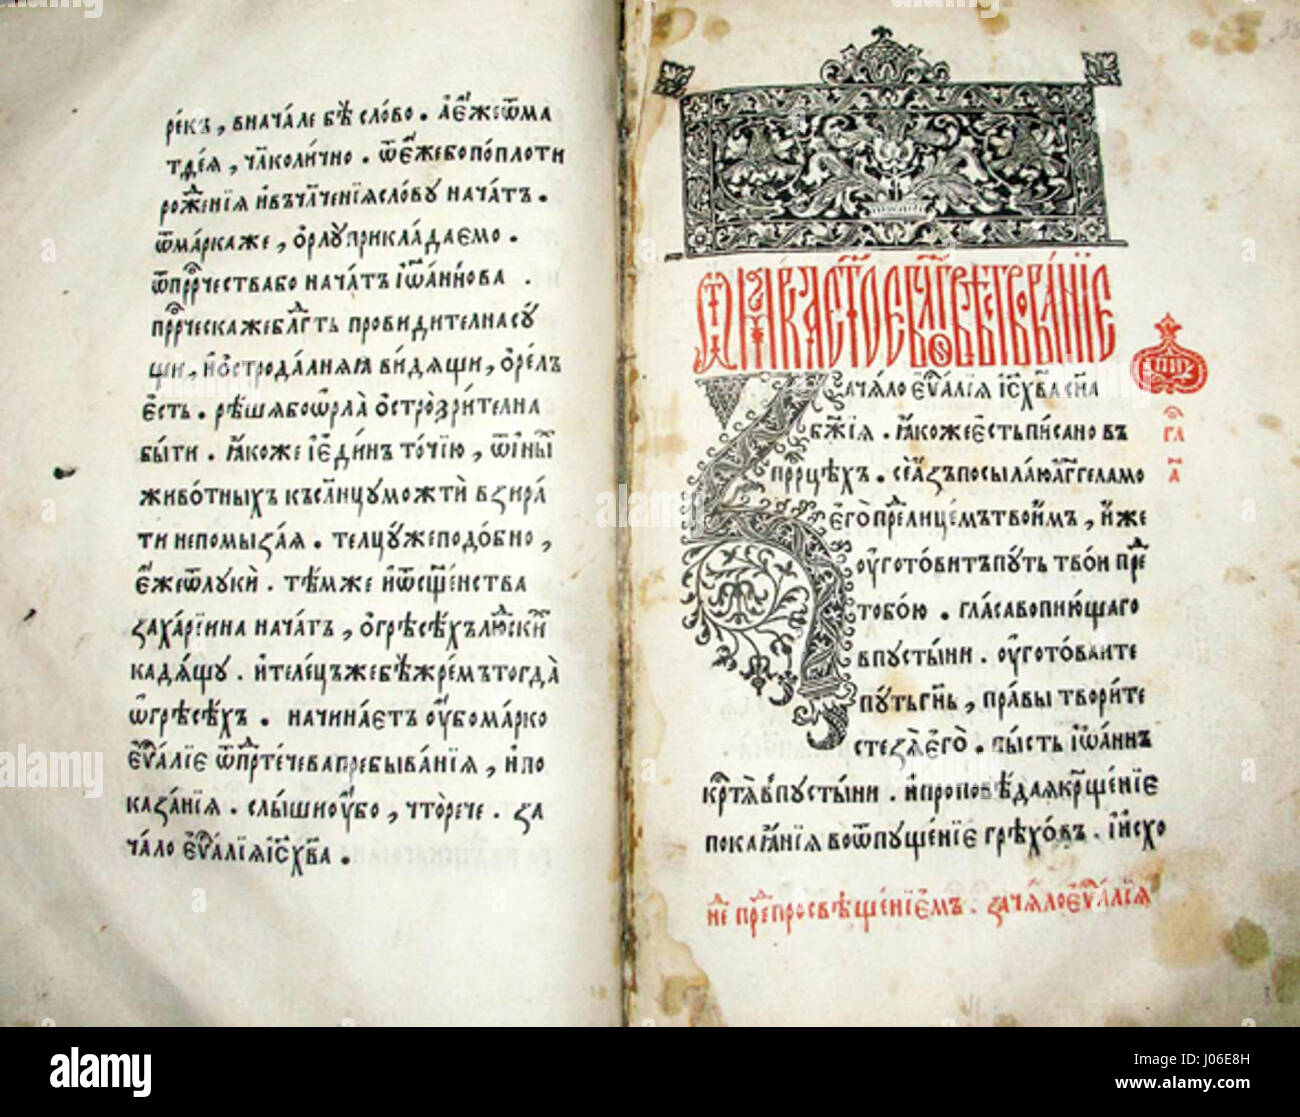 рекъ, вначале бѣ слово. аеже ѿма
тдея, чл҃колично. ѿеже бо поплоти
роженїя ивъчл҃ченїя слову начатъ.
ѿмарка же, орлу прикладаемо.
ѿпр҇рчества бо начатъ їѡаннова.
пр҇рческа же блгⷣть провидителна су
щи, иостродалняꙗ видящи, орелъ
есть. рѣша бо орла острозрителна
быти. ꙗкоже їединъ точїю, ѿины
животныхъ къ слн҃цу можти взира
ти непомызая. телцу же подобно,
еже ѿ луки. тѣмже и ѿ сщ҃енства
захарїина начатъ, о грѣсѣхъ людскⷯ
кадящу. ителецъ же бѣ жремъ тогда
ѿ грѣсѣхъ. начинаетъ оубо марко
еѵⷢалїе ѿ прⷣтечева пребыванїя, ипо
казанїя. слыши оубо, что рече. за
чало еѵⷢалїя їс҃ х҃ва.
ѿ марка стое бл҃говѣствованїе
зачало еѵⷢалїя їс҃ х҃ва сн҃а
бж҃їя. ꙗкоже есть писано въ
пр҇рцѣхъ. се азъ посылаю агг҃ела мо
его пред лицемъ твоимъ, иже
оуготовитъ путь твои пре
тобою. глас вопиющаго
в пустыни. оуготоваите
путь гн҃ь, правы творите
стезя его. бысть їѡаннъ
крⷭ҇тя в пустыни. ипроповѣдая крщ҃енїе
покаянїя во ѿпущенїе грѣховъ. їисхо
гл҃
а
нⷣе прⷣе просвѣщенїемъ. зачяло еѵⷢалїя
alamy stock photo
J06E8H
www.alamy.com